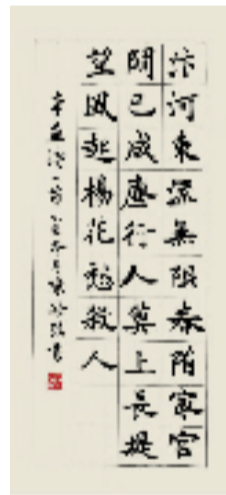 汴河東流無限春隋家宮
闕已成塵行人莫上長堤
望風起楊花愁殺人
李益詩一首